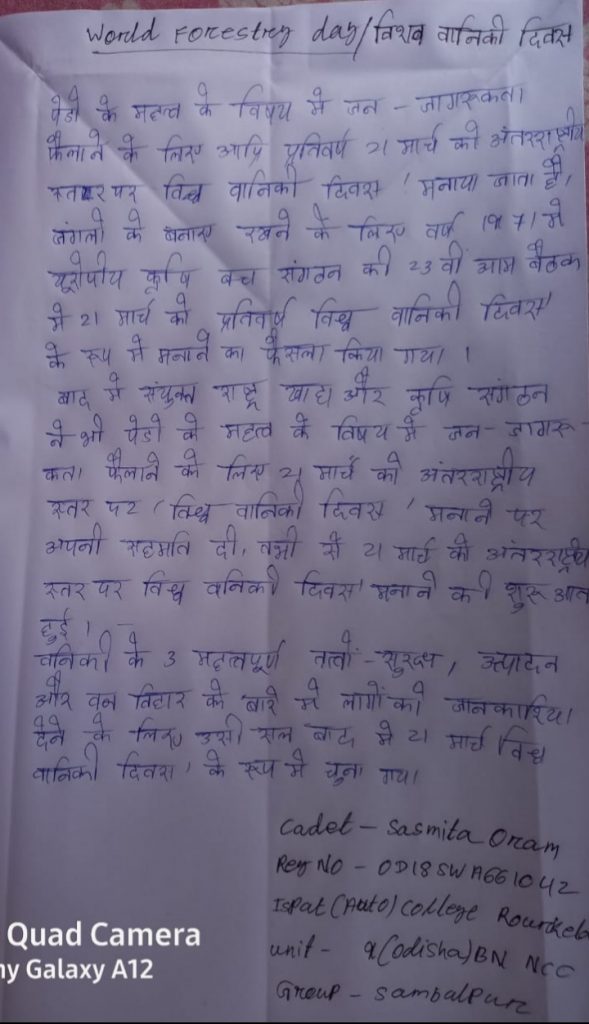 World Forestry day/विशव वानिकी दिवस
पेडो के महत्व के विषय मे जन - जागरूकता
फैलाने के लिए आप्रि प्रतिवर्ष 21 मार्च को अंतरराष्ट्रीय
स्तर पर विश्व वानिकी दिवस' मनाया जाता है,
जंगलो के बनाए रखने के लिए वर्ष 1971 मे
यूरोपीय कृषि बच संगठन की 23 वी आम बैठक
मे 21 मार्च को प्रतिवर्ष विश्व वानिकी दिवस'
के रूप मे मनाने का फैसला किया गया। ।
बाद मे संयुक्त राष्ट्र खाद्य और कृषि संगठन
ने भी पेडो के महत्व के विषय मे जन - जागरू -
कता फैलाने के लिए 21 मार्च को अंतरराष्ट्रीय
स्तर पर 'विश्व वानिकी दिवस' मनाने पर
अपनी सहमति दी, तभी से 21 मार्च को अंतरराष्ट्रीय
स्तर पर विश्व वनिकी दिवस' मनाने की शुरू आत
हुई। -
वनिकी के 3 महत्वपूर्ण तत्वों - सुरक्ष, उत्पादन
और वन विहार के बारे मे लागों को जानकारिया
देने के लिए उसी साल बाद मे 21 मार्च 'विश्व
वानिकी दिवस' के रूप मे चुना गया।
Cadet - Sasmita Oram
Reg No - OD18SWA661042
Ispat (Auto) College Rourkela
unit - 9(odisha)BN NCC
Group - Sambalpur
Quad Camera
ny Galaxy A12